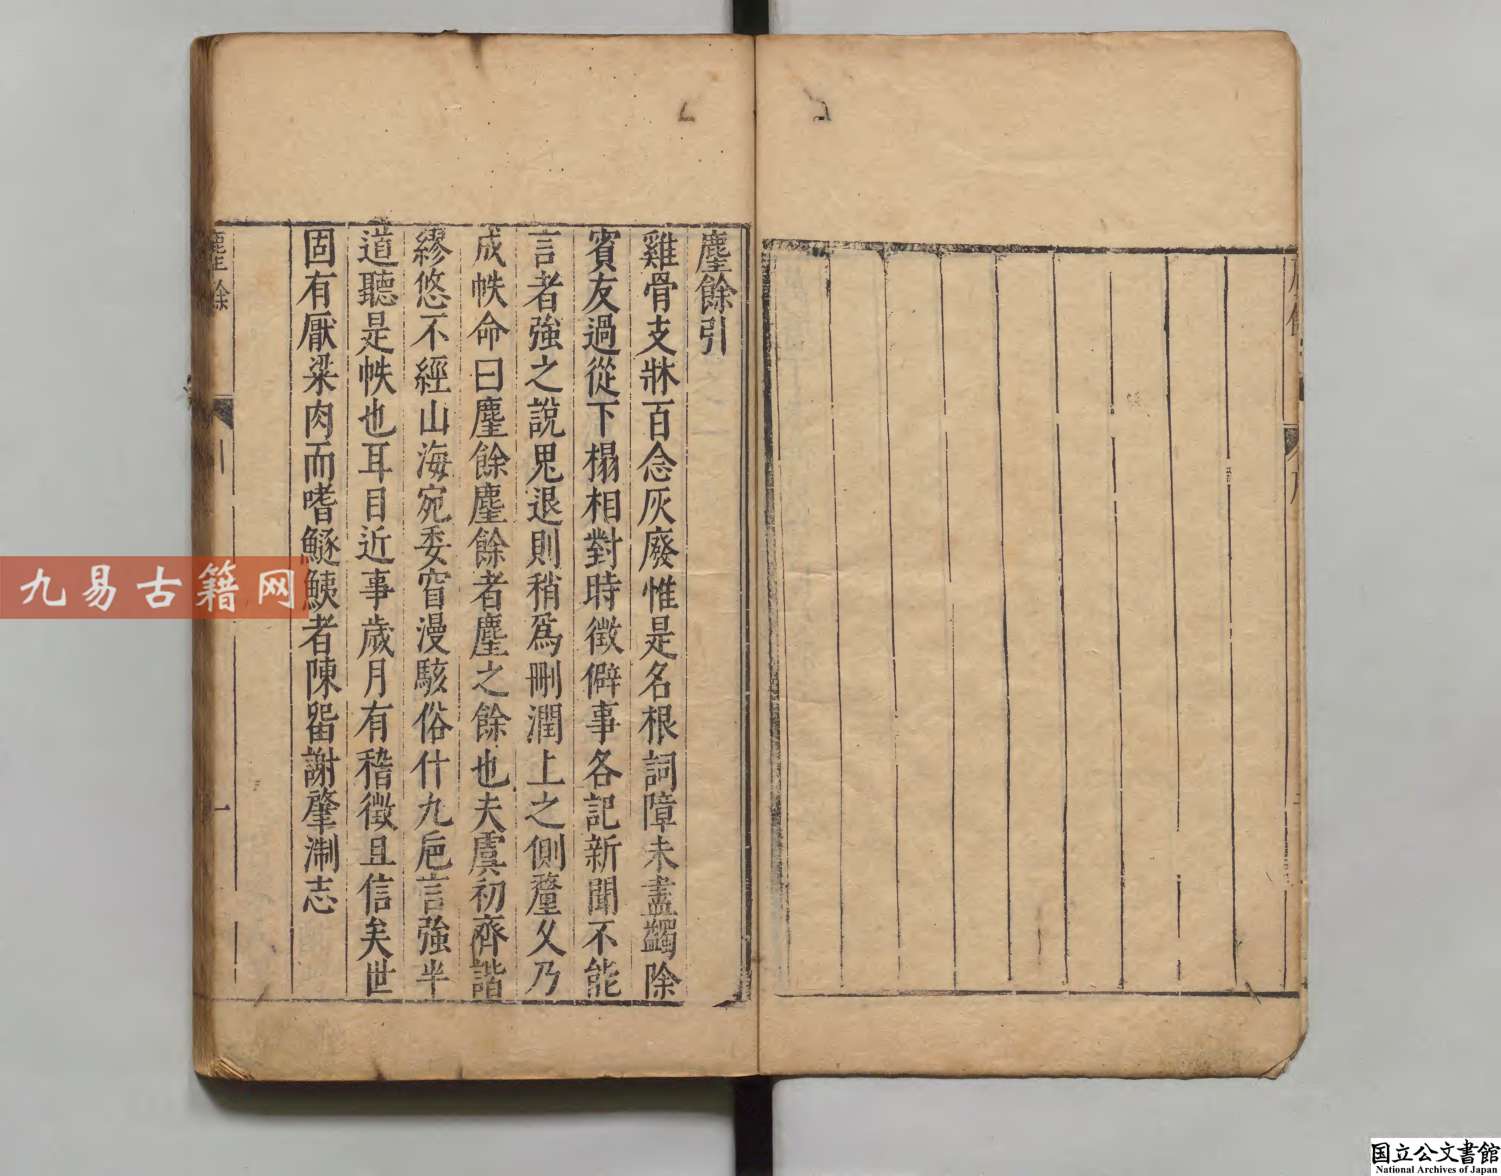 麈餘引
雞骨支牀百念灰廢惟是名根詞障未盡蠲除
賓友過從下榻相對時徵僻事各記新聞不能
言者強之說鬼退則稍爲刪潤上之側釐久乃
成帙命曰麈餘麈餘者麈之餘也夫虞初齊諧
繆悠不經山海宛委窅漫駭俗什九巵言強半
道聽是帙也耳目近事歲月有稽徵且信矣世
固有厭粱肉而嗜鱁鮧者陳留謝肇淛志
麈餘
引
一
九易古籍网
国立公文書館
National Archives of Japan